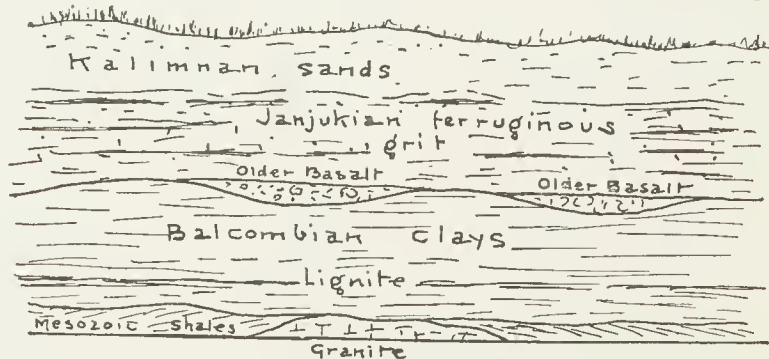 Kalimnan sands
Janjukian ferruginous
grit
Older Basalt
Older Basalt
Balcombian Clays
Lignite
Mesozoic Shales
Granite